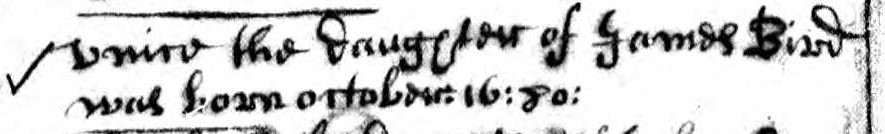 unice the daughter of James Bird
was born october: 16: 80: